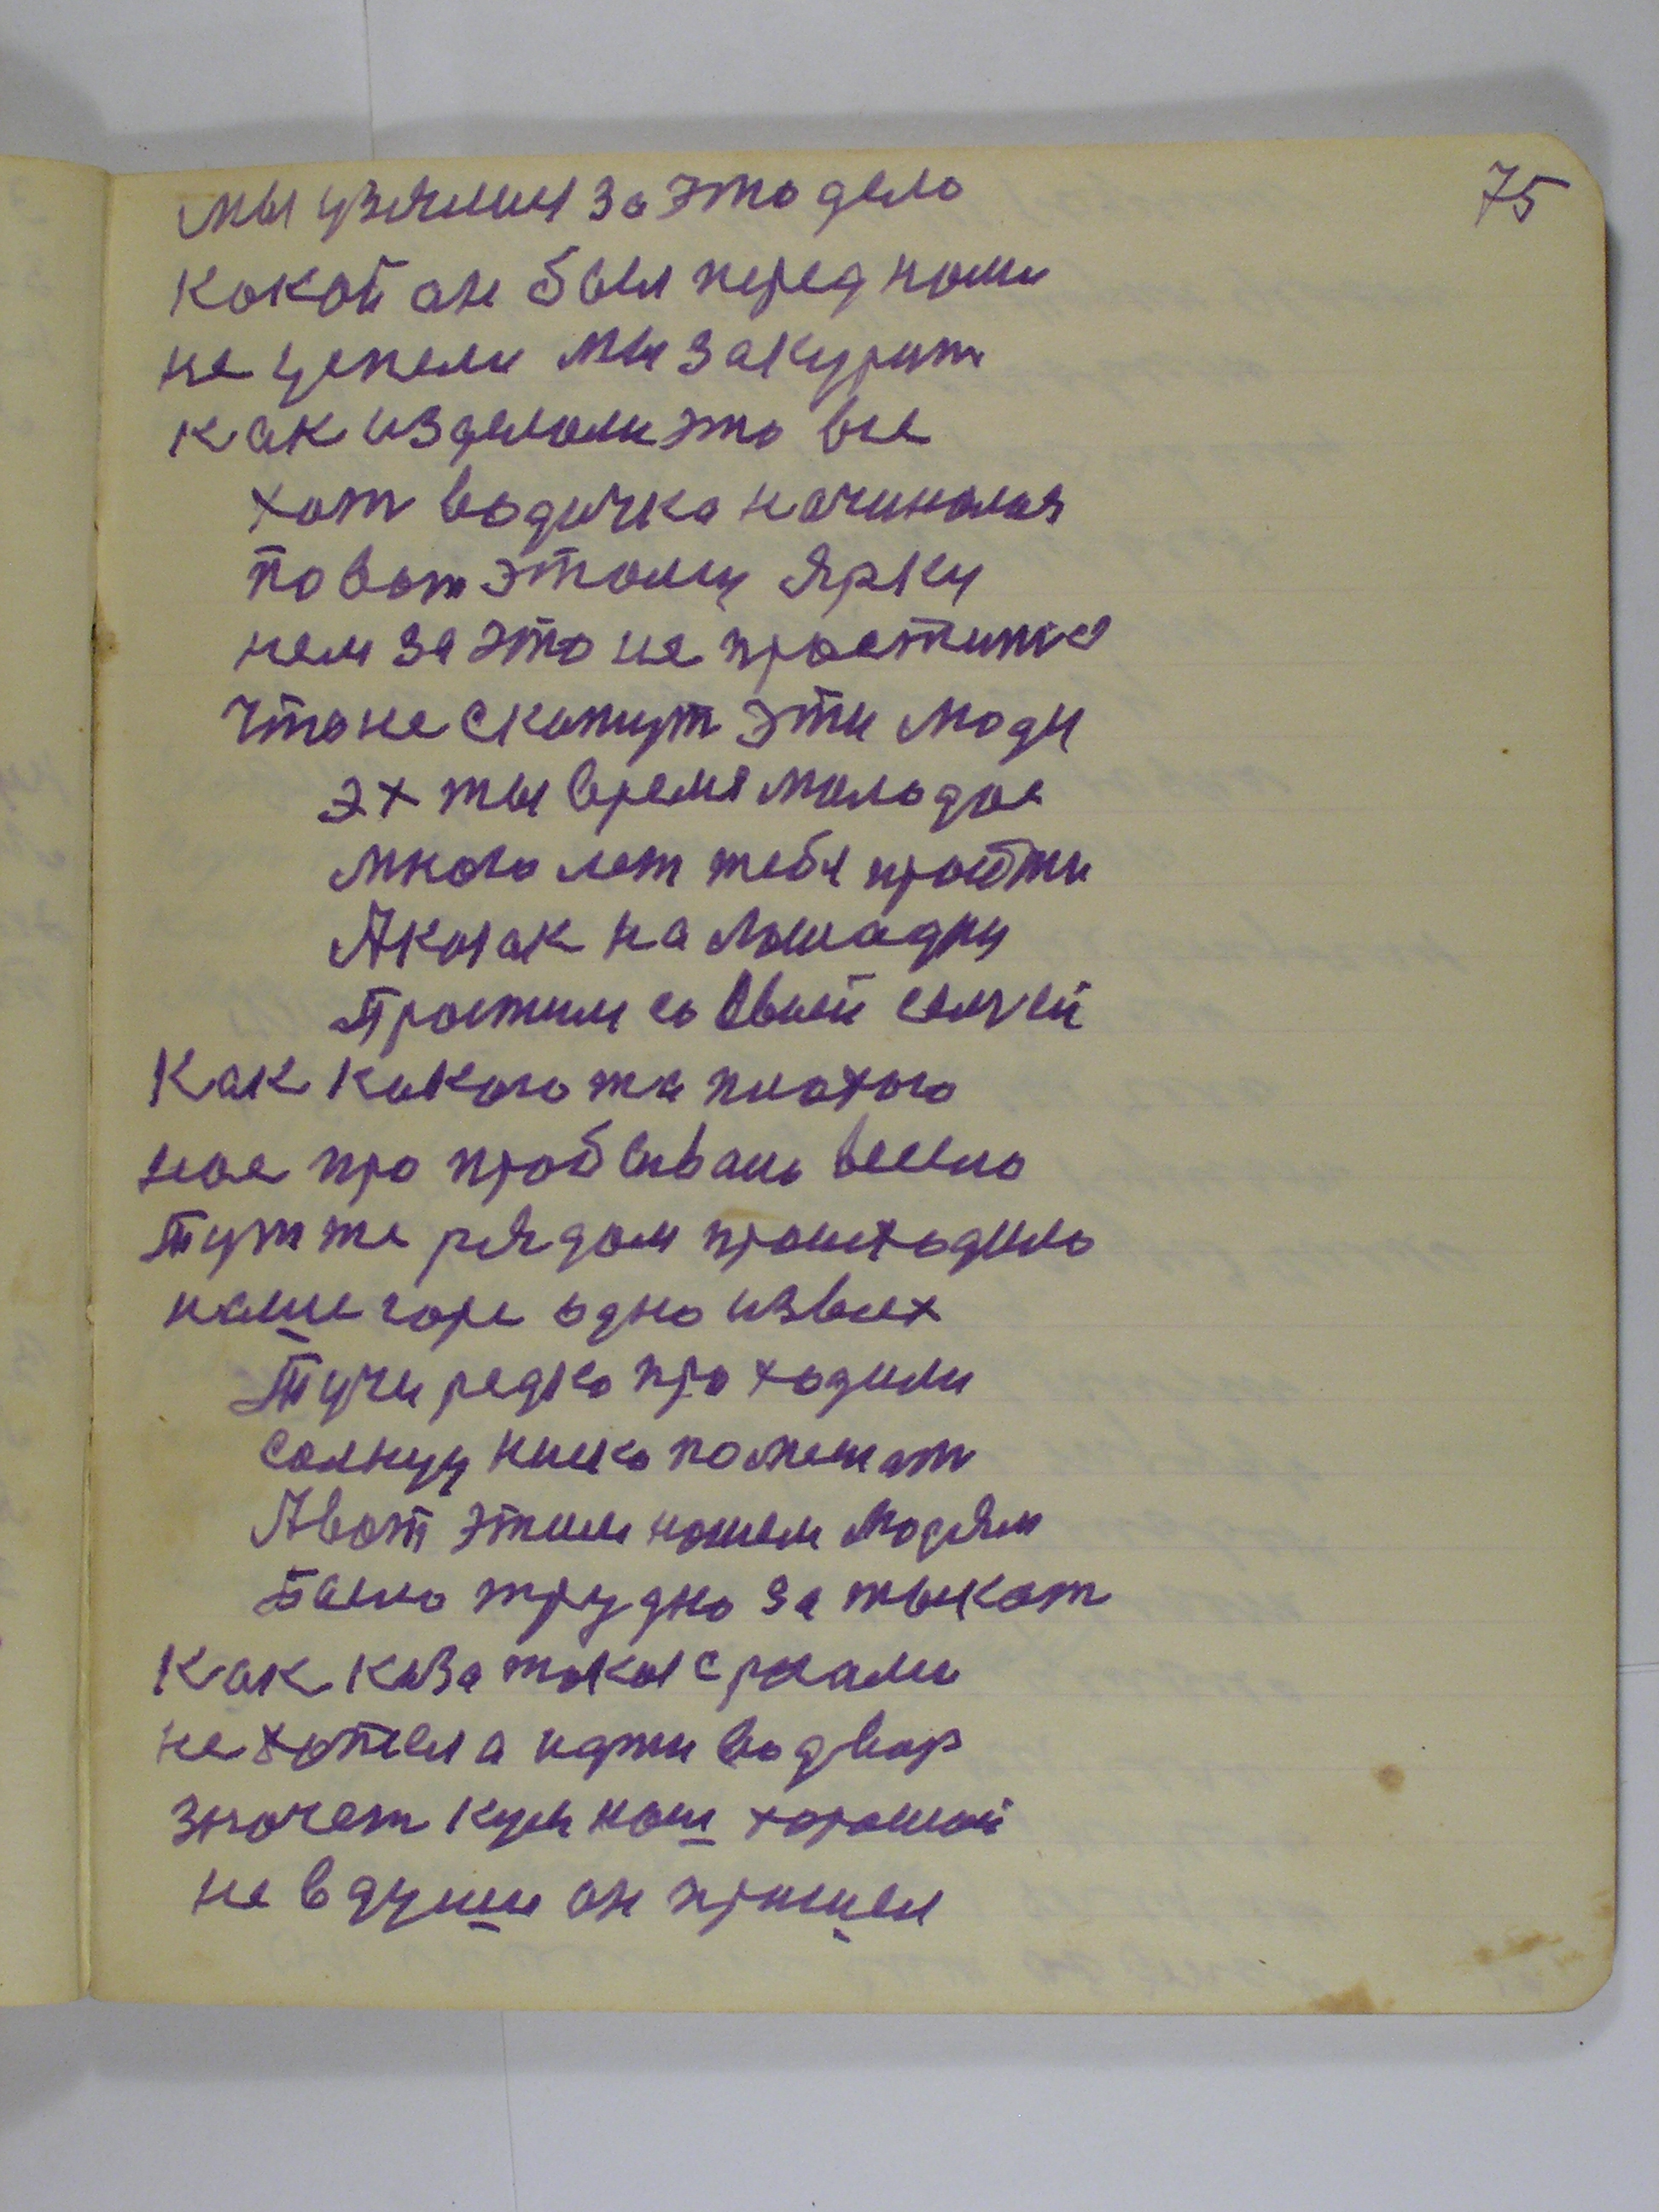 75
мы узялися за это дело
какой он был перед нами
не успели мы закурит
как изделали это все
хот водичка начиналас
по вот этому Ярку
нам за это не проститса
что не скажут эти люди
эх ты время молодое
много лет тебя пройти
А как на лошадку
Простил со своей семъей
Как какого то плохого
нас про пробивало весело
Тут же рядом происходило
наше горе одно из всех
Тучи редко проходили
Солнцу ниско помешат
А вот этим нашем людям
Было трудно затыкат
Как коза такая с рогами
не хотела идти во двор
значет кум наш хороший
не в души он пришел